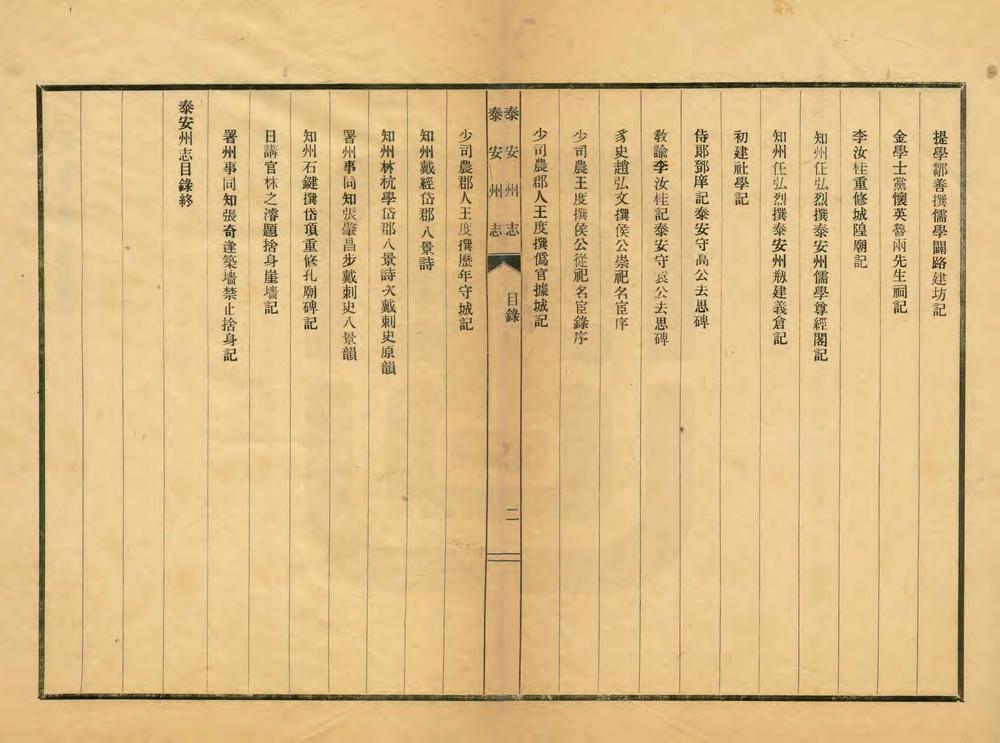 提學鄒善撰儒學闢路建坊記
金學士黨懷英魯兩先生祠記
李汝桂重修城隍廟記
知州任弘烈撰泰安州儒學尊經閣記
知州任弘烈撰泰安州剏建義倉記
初建社學記
侍郎鄧庠記泰安守高公去思碑
敎諭李汝桂記泰安守袁公去思碑
豸史趙弘文撰侯公崇祀名宦序
少司農王度撰侯公從祀名宦錄序
少司農郡人王度撰僞官據城記
泰安州志
目錄
二
泰安州志
少司農郡人王度撰歷年守城記
知州戴經岱郡八景詩
知州林杭學岱郡八景詩次戴刺史原韻
署州事同知張肇昌步戴刺史八景韻
知州石鍵撰岱項重修孔廟碑記
日講官林之濬題捨身崖墻記
署州事同知張奇逢築墻禁止捨身記
泰安州志目錄終